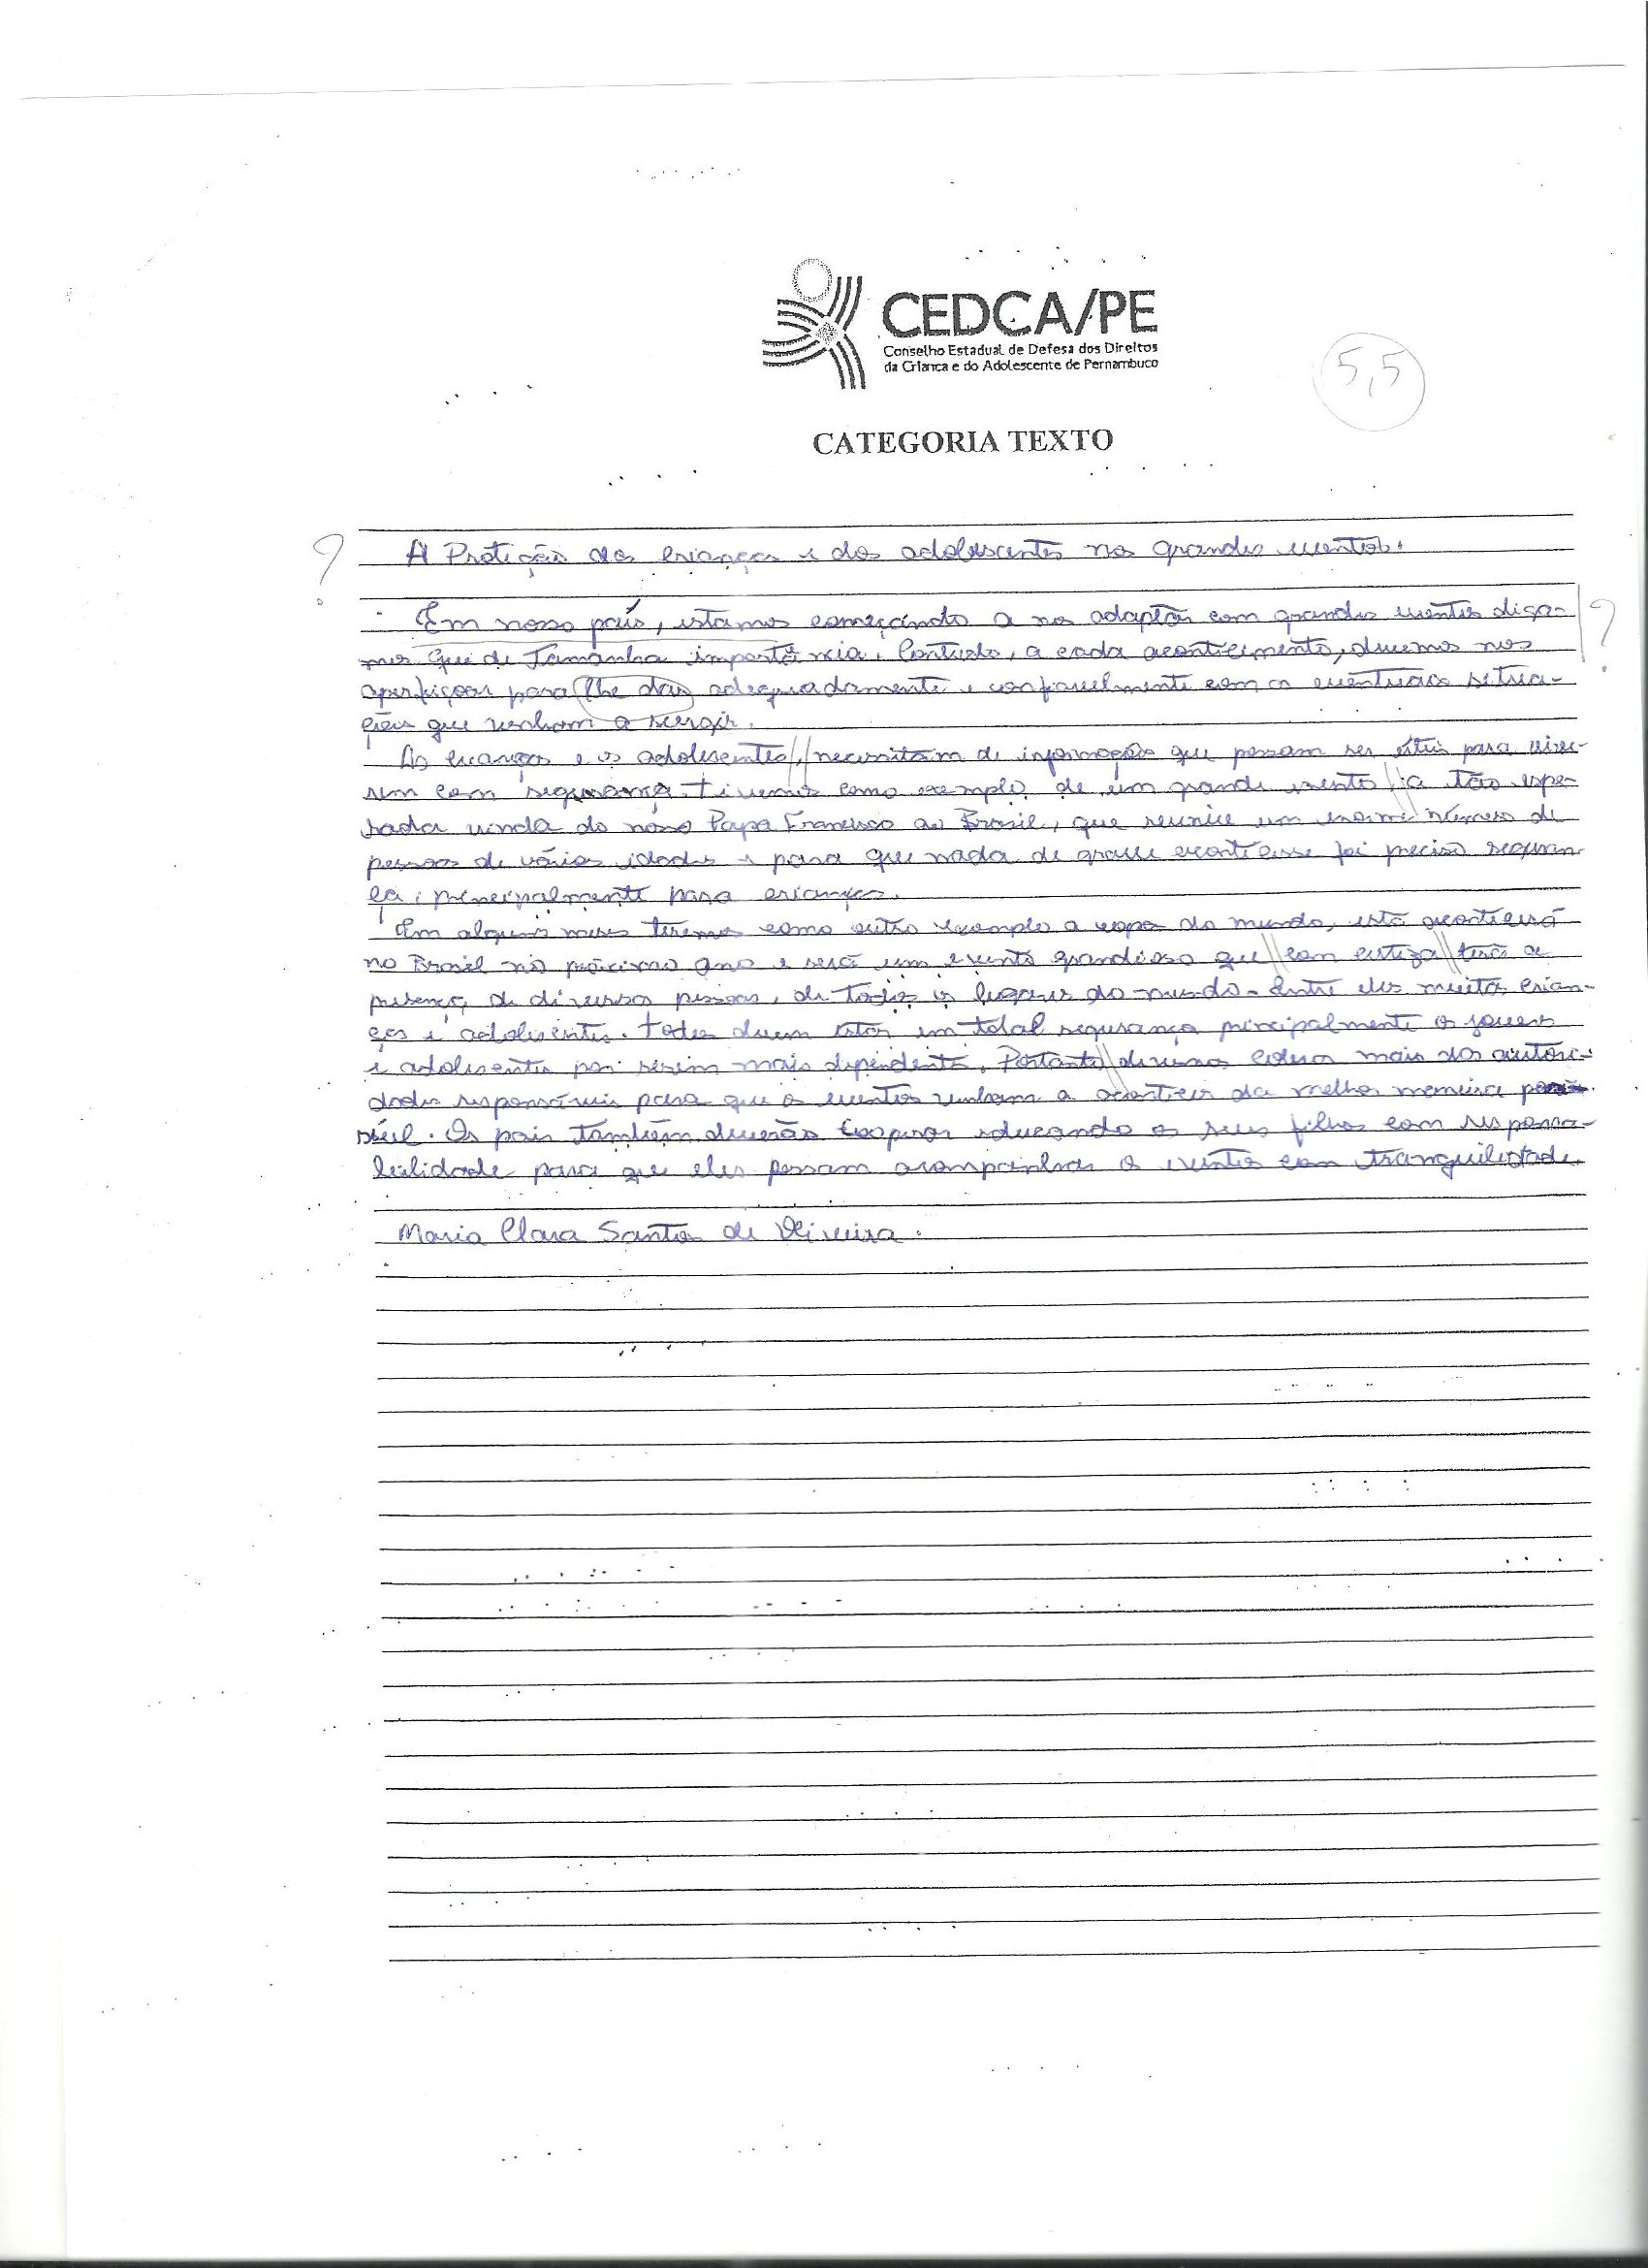 CEDCA/PE
Conselho Estadual de Defesa dos Direitos
da Criança e do Adolescente de Pernambuco
5,5
CATEGORIA TEXTO
? A Proteção das crianças e dos adolescentes nos grandes eventos.
Em nosso país, estamos começando a nos adaptar com grandes eventos diga- ?
mos que de Tamanha importância. Contudo, a cada acontecimento, devemos nos
aperfeiçoar para lhe dar adequadamente e confiavelmente com as eventuais situa-
ções que venham a surgir.
As crianças e os adolescentes, necessitam de informações que possam ser úteis para vive-
rem com segurança. tivemos como exemplo de um grande evento a tão espe-
rada vinda do nosso Papa Francisco ao Brasil, que reuniu um enorme número de
pessoas de várias idades e para que nada de grave acontecesse foi preciso seguran-
ça, principalmente para crianças.
Em alguns meses teremos como outro exemplo a copa do mundo, esta acontecerá
no Brasil no próximo ano e será um evento grandioso que com certeza terá a
presença de diversas pessoas, de todos os lugares do mundo. Entre eles muitas crian-
ças e adolescentes. todos devem estar em total segurança principalmente os jovens
e adolescentes por serem mais dependentes. Portanto devemos cobrar mais das autori-
dades responsáveis para que os eventos venham a acontecer da melhor maneira pos-
sível. Os pais também deverão cooperar educando os seus filhos com responsa-
bilidade para que eles possam acompanhar os eventos com tranquilidade.
Maria Clara Santos de Oliveira.